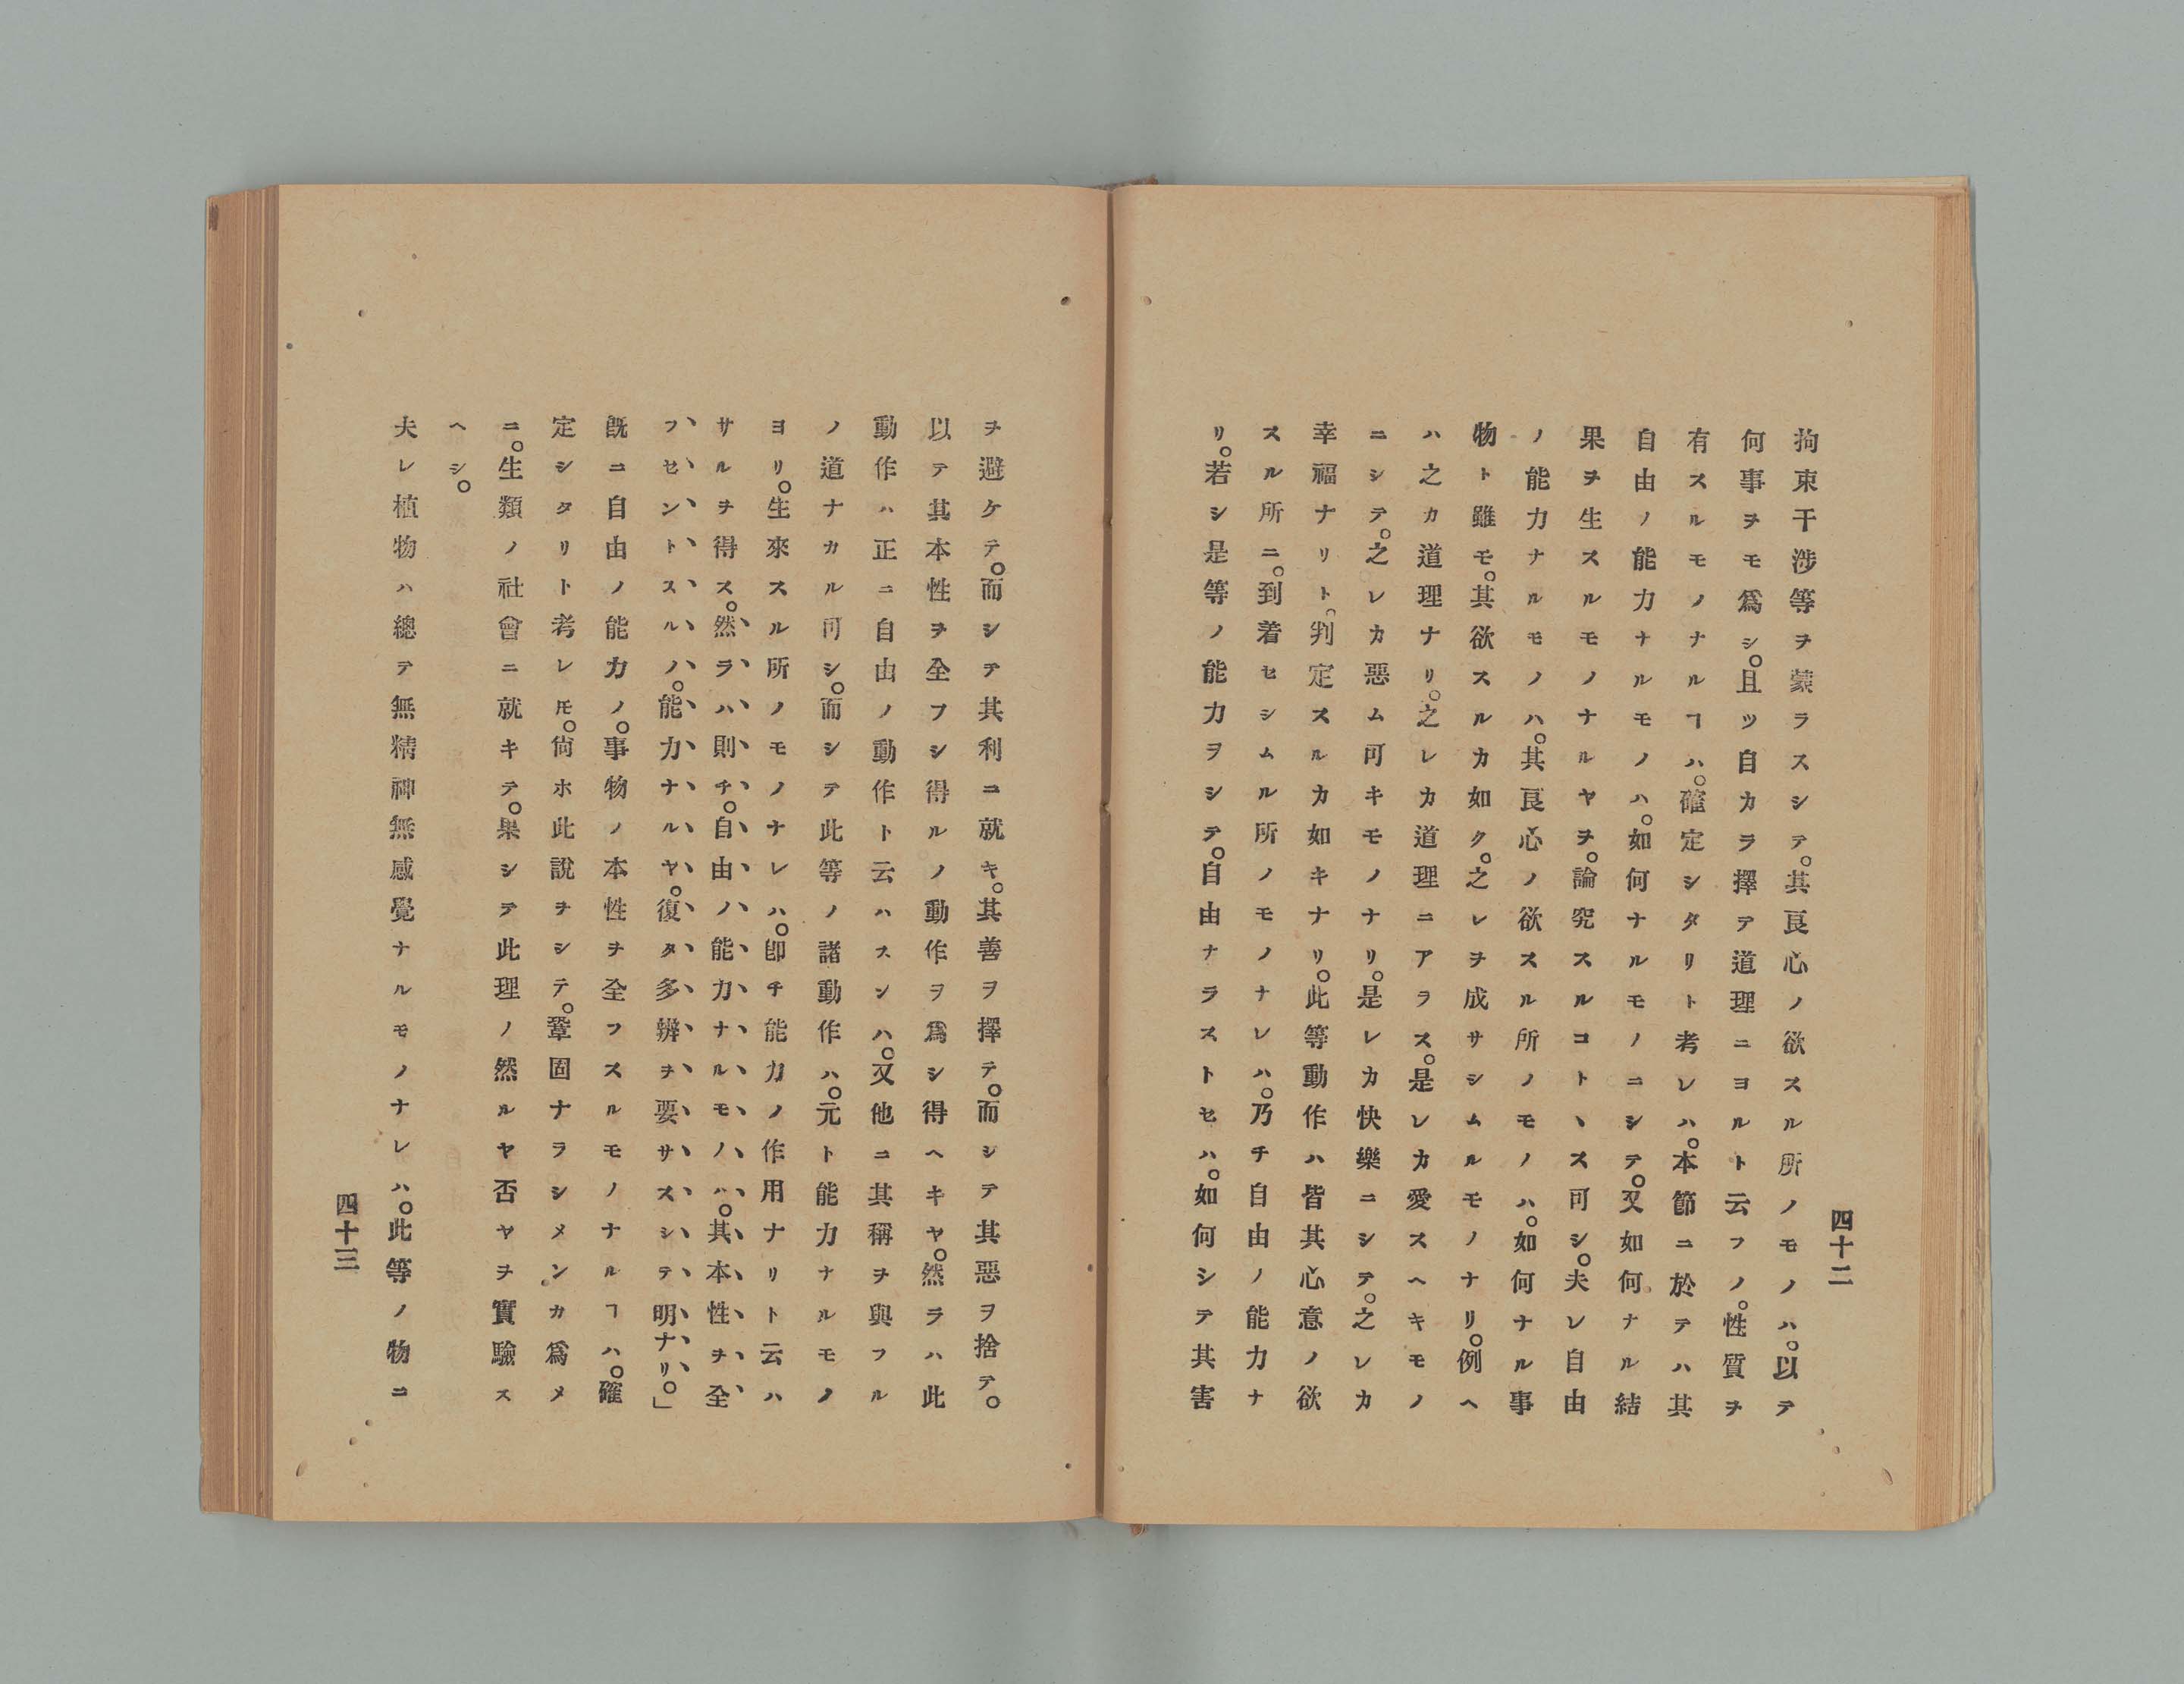 四十二
拘束干渉等ヲ蒙ラスシテ。其良心ノ欲スル所ノモノハ。以テ
何事ヲモ爲シ。且ツ自カラ擇テ道理ニヨルト云フノ。性質ヲ
有スルモノナルヿハ。確定シタリト考レハ。本節ニ於テハ其
自由ノ能力ナルモノハ。如何ナルモノニシテ。又如何ナル結
果ヲ生スルモノナルヤヲ。論究スルコトヽス可シ。夫レ自由
ノ能力ナルモノハ。其良心ノ欲スル所ノモノハ。如何ナル事
物ト雖モ。其欲スルカ如ク。之レヲ成サシムルモノナリ。例ヘ
ハ之カ道理ナリ。之レカ道理ニアラス。是レカ愛スヘキモノ
ニシテ。之レカ惡ム可キモノナリ。是レカ快樂ニシテ。之レカ
幸福ナリト。判定スルカ如キナリ。此等動作ハ皆其心意ノ欲
スル所ニ。到着セシムル所ノモノナレハ。乃チ自由ノ能力ナ
リ。若シ是等ノ能力ヲシテ。自由ナラストセハ。如何シテ其害
ヲ避ケテ。而シテ其利ニ就キ。其善ヲ擇テ。而シテ其惡ヲ捨テ。
以テ其本性ヲ全フシ得ルノ動作ヲ爲シ得ヘキヤ。然ラハ此
動作ハ正ニ自由ノ動作ト云ハスンハ。又他ニ其稱ヲ與フル
ノ道ナカル可シ。而シテ此等ノ諸動作ハ。元ト能力ナルモノ
ヨリ。生來スル所ノモノナレハ。卽チ能力ノ作用ナリト云ハ
サルヲ得ス。然ラハ則チ。自由ノ能力ナルモノハ。其本性ヲ全
フセントスルノ。能力ナルヤ。復タ多辨ヲ要サスシテ明ナリ。」
旣ニ自由ノ能力ノ。事物ノ本性ヲ全フスルモノナルヿハ。確
定シタリト考レ𪜈。尙ホ此說ヲシテ。鞏固ナラシメンカ爲メ
ニ。生類ノ社會ニ就キテ。果シテ此理ノ然ルヤ否ヤヲ實驗ス
ヘシ。
夫レ植物ハ總テ無精神無感覺ナルモノナレハ。此等ノ物ニ
四十三